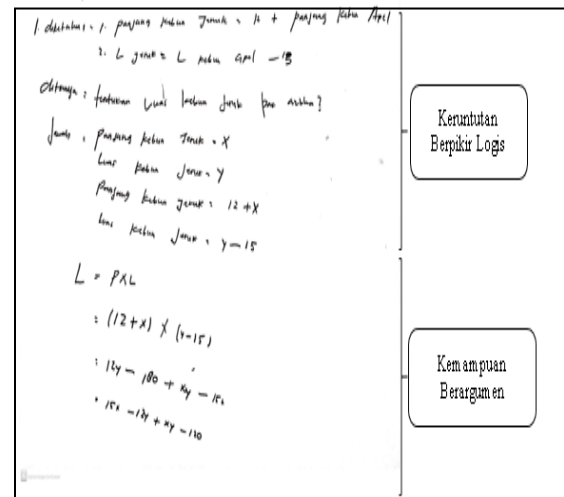 1. diketahui = 1. panjang kebun Jeruk = 12 + panjang kebun Apel
2. L jeruk = L kebun apel - 15
ditanya : tentukan luas kebun Jeruk
Jawab : panjang kebun Jeruk = X
Luas kebun Jeruk = Y
Panjang kebun Jeruk = 12 + X
luas kebun Jeruk = y - 15
L = P X L
= (12+x) X (y-15)
= 12y - 180 + xy - 15x
= 15x - 12y + xy - 180
Keruntutan
Berpikir Logis
Kemampuan
Berargumen